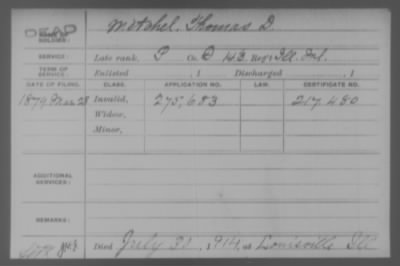 DEAD
NAME OF SOLDIER: Motshel, Thomas D.
SERVICE: Late rank, P Co. D 143 Reg't Ill. Inf.
TERM OF SERVICE: Enlisted , 1 Discharged , 1
DATE OF FILING. CLASS. APPLICATION NO. LAW. CERTIFICATE NO.
1879 Mar 28 Invalid, 275,683 217,480
Widow,
Minor,
ADDITIONAL SERVICES:
REMARKS:
Died July 30, 1914, at Louisville Ill